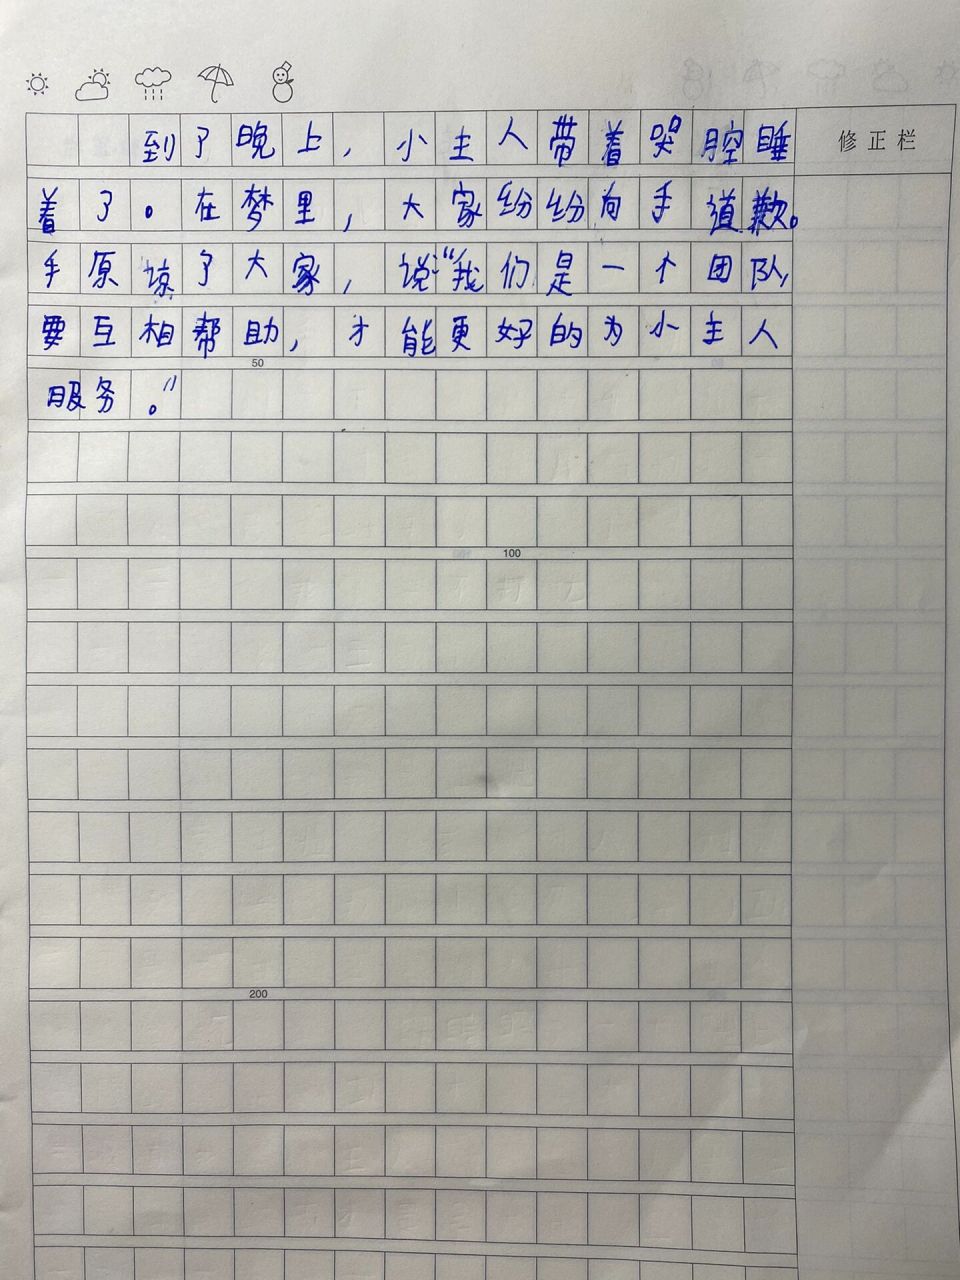 到了晚上，小主人带着哭腔睡
修正栏
着了。在梦里，大家纷纷向手道歉。
手原谅了大家，说:“我们是一个团队，
要互相帮助，才能更好的为小主人
50
服务。”
100
200